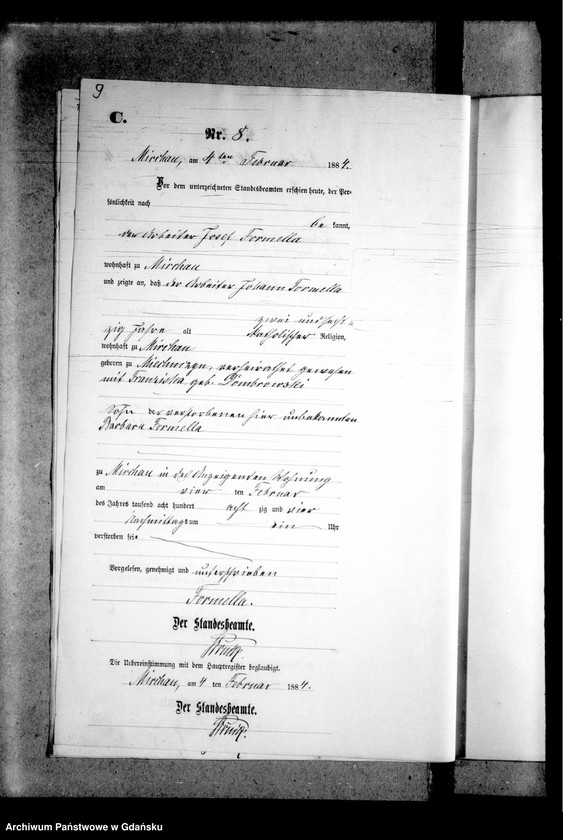 9
C.
Nr. 8.
Mirchau, am 4ten Februar 1884.
Vor dem unterzeichneten Standesbeamten erschien heute, der Per-
sönlichkeit nach
be kannt,
der Arbeiter Josef Formella
wohnhaft zu Mirchau
und zeigte an, daß der Arbeiter Johann Formella
zwei und sech
zig Jahre alt katholischer Religion,
wohnhaft zu Mirchau
geboren zu verheirathet gewesen
mit Franziska geb. Dombrowski
Sohn der verstorbenen hier unbekannten
Barbara Formella
zu Mirchau in des Anzeigenden Wohnung
am vier ten Februar
des Jahres tausend acht hundert acht zig und vier
Nachmittags um ein Uhr
verstorben sei
Vorgelesen, genehmigt und unterschrieben
Formella.
Der Standesbeamte.
Die Uebereinstimmung mit dem Hauptregister beglaubigt.
Mirchau, am 4 ten Februar 1884.
Der Standesbeamte.
Archiwum Państwowe w Gdańsku